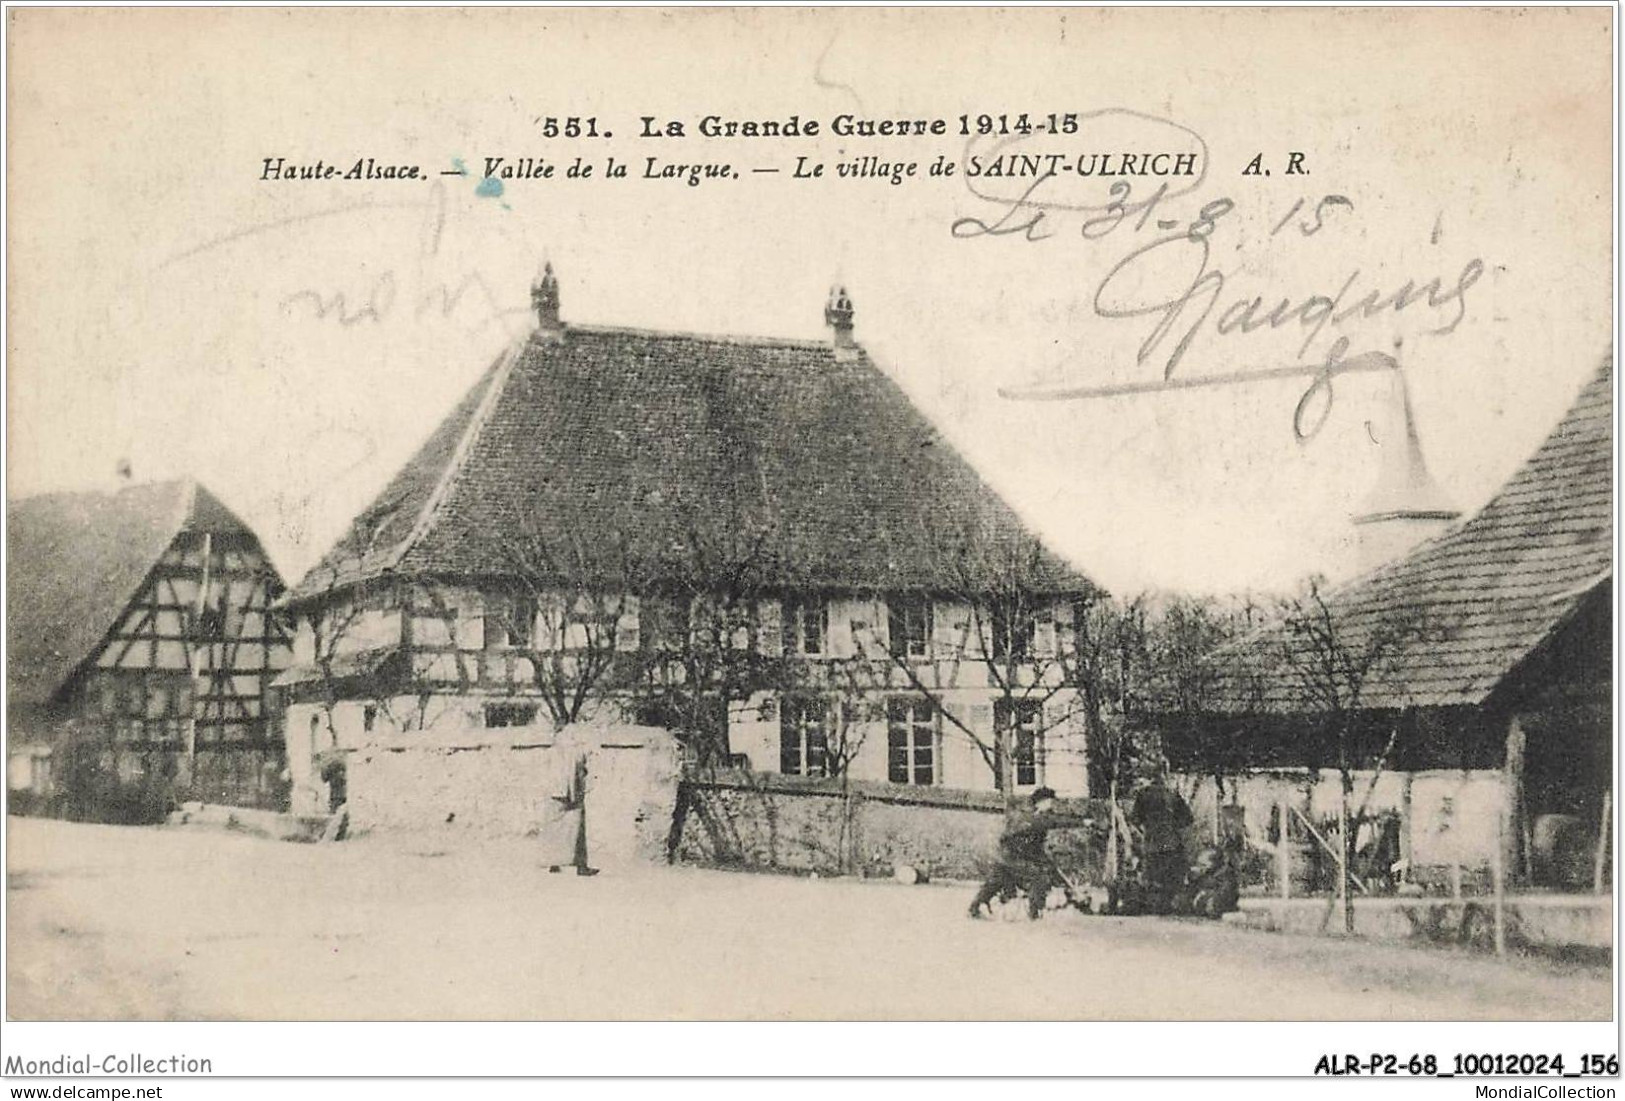 551. La Grande Guerre 1914-15
Haute-Alsace. — Vallée de la Largue. — Le village de SAINT-ULRICH A. R.
Le 31-8.15
Mondial-Collection
ALR-P2-68_10012024_156
www.mondialcollection.com
MondialCollection